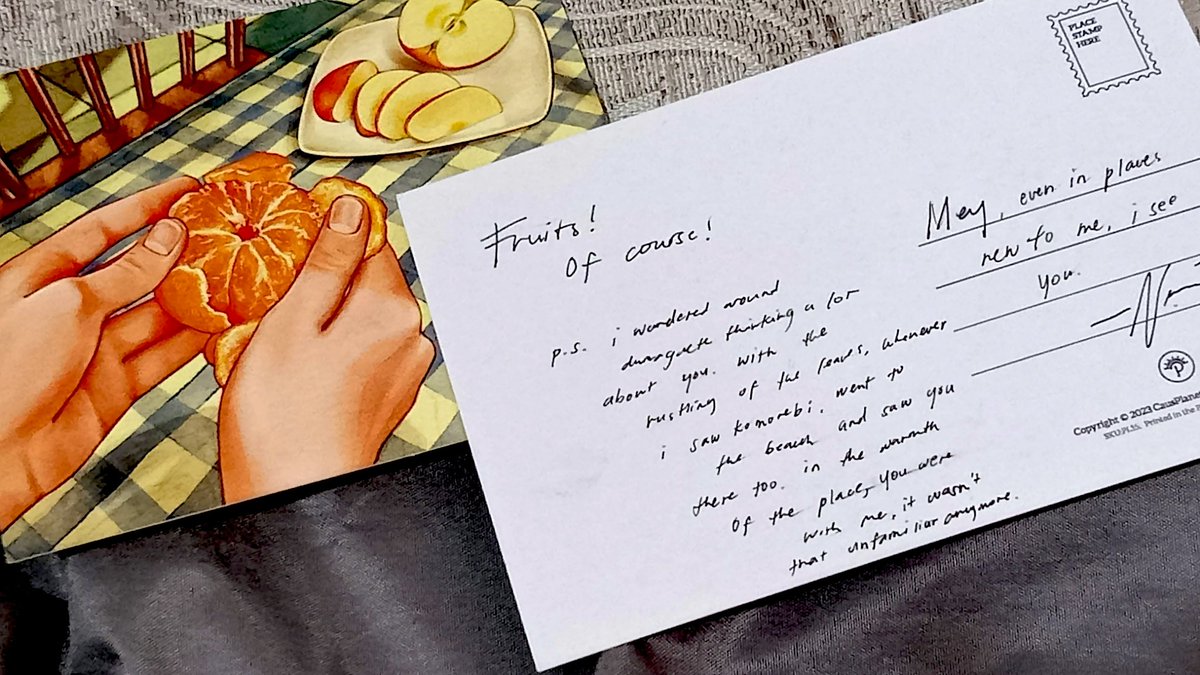 PLACE
STAMP
HERE
Fruits!
Of course!
p.s. i wandered around
dumaguete thinking a lot
about you. with the
rustling of the leaves, whenever
i saw komorebi. went to
the beach and saw you
there too. in the warmth
of the place, you were
with me, it wasn't
that unfamiliar anymore.
Mey, even in places
new to me, i see
you.
Copyright © 2023 CausPlanet
SKU:PL35. Printed in the